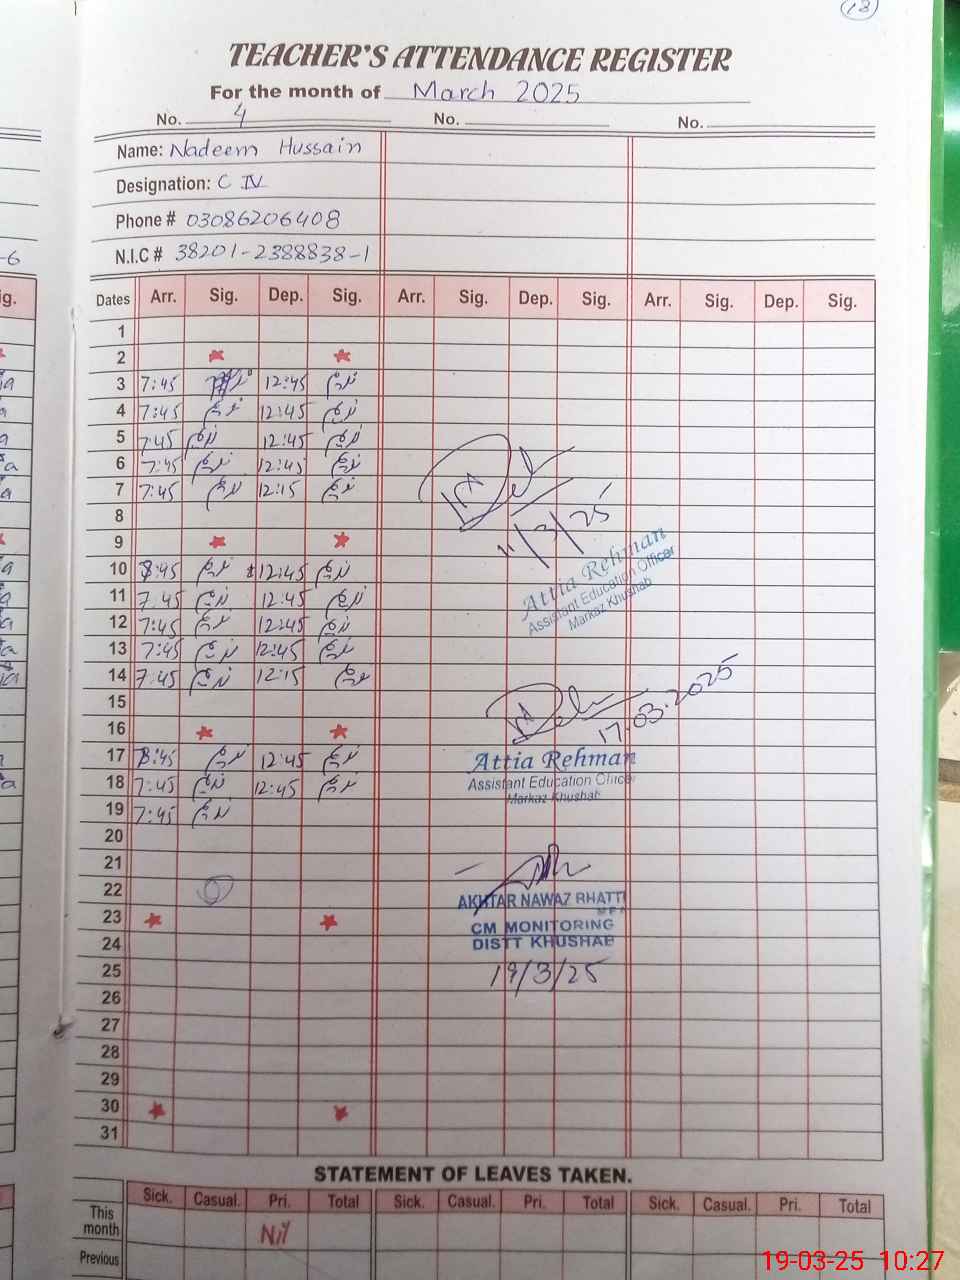 18
TEACHER'S ATTENDANCE REGISTER
For the month of March 2025
No. 4 No. No.
Name: Nadeem Hussain
Designation: C IV
Phone # 03086206408
-6
N.I.C # 38201-2388838-1
ig.
Dates Arr. Sig. Dep. Sig. Arr. Sig. Dep. Sig. Arr. Sig. Dep. Sig.
1
2
3 7:45 12:45 ندیم
4 7:45 ندیم 12:45 ندیم
5 7:45 ندیم 12:45 ندیم
6 7:45 ندیم 12:45 ندیم
7 7:45 ندیم 12:15 ندیم
8
11/3/25
9
Attia Rehman
Assistant Education Officer
Markaz Khushab
10 :45 ندیم 12:45 ندیم
11 7:45 ندیم 12:45 ندیم
12 7:45 ندیم 12:45 ندیم
13 7:45 ندیم 12:45 ندیم
14 7:45 ندیم 12:15 ندیم
15
16
17.03.2025
17 :45 ندیم 12:45 ندیم
Attia Rehman
Assistant Education Officer
Markaz Khushab
18 7:45 ندیم 12:45 ندیم
19 7:45 ندیم
20
21
22
AKHTAR NAWAZ BHATTI
23
CM MONITORING
DISTT KHUSHAB
24
25
19/3/25
26
27
28
29
30
31
STATEMENT OF LEAVES TAKEN.
Sick. Casual. Pri. Total Sick. Casual. Pri. Total Sick. Casual. Pri. Total
This month Nil
Previous
19-03-25 10:27